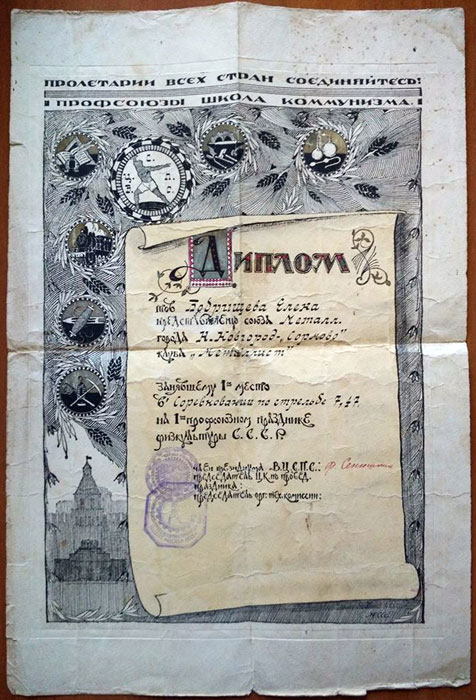 ПРОЛЕТАРИИ ВСЕХ СТРАН СОЕДИНЯЙТЕСЬ!
ПРОФСОЮЗЫ ШКОЛА КОММУНИЗМА.
ДИПЛОМ
тов Бобрищева Елена
представителю союза Металл.
города Н.Новгород „Сормово"
клуба „Металлист"
занявшему 1ое место
в Соревновании по стрельбе 7,47.
на 1ом профсоюзном празднике
физкультуры С.С.С.Р.
член президиума В.Ц.С.П.С.:
председатель Ц.К. по провед.
праздника:
председатель орг. тех. комиссии: